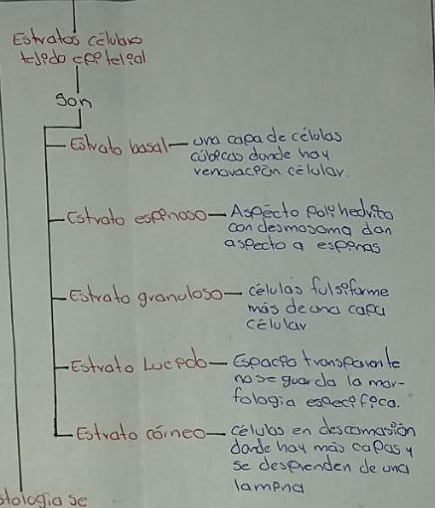 Estratos célulares
tejido epitelial
Son
Estrato basal — una capa de células
cúbicas donde hay
renovación célular.
Estrato espinoso — Aspécto polihedrico
con desmosoma dan
aspecto a espinas
Estrato granuloso — células fulsiforme
más de una capa
célular
Estrato Lucido — Espacio transparente
no se guarda la mor-
fología especifica.
Estrato córneo — células en descamasión
donde hay más capas y
se desprenden de una
lamina
stologia se